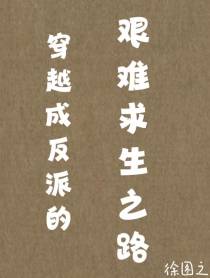 穿越成反派的
艰难求生之路
徐图之